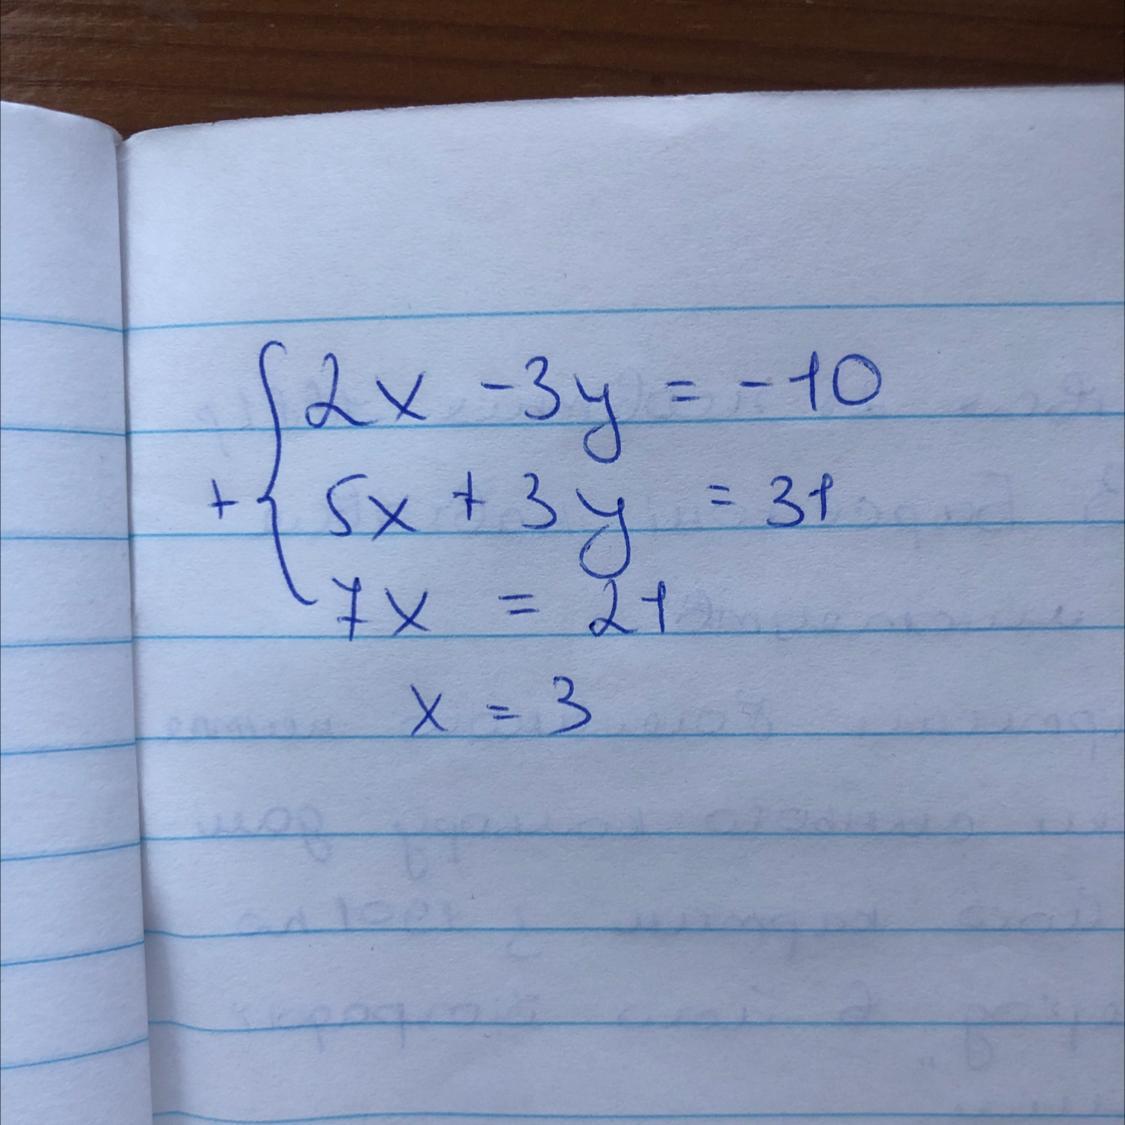 2x - 3y = -10
+ 5x + 3y = 31
7x = 21
x = 3